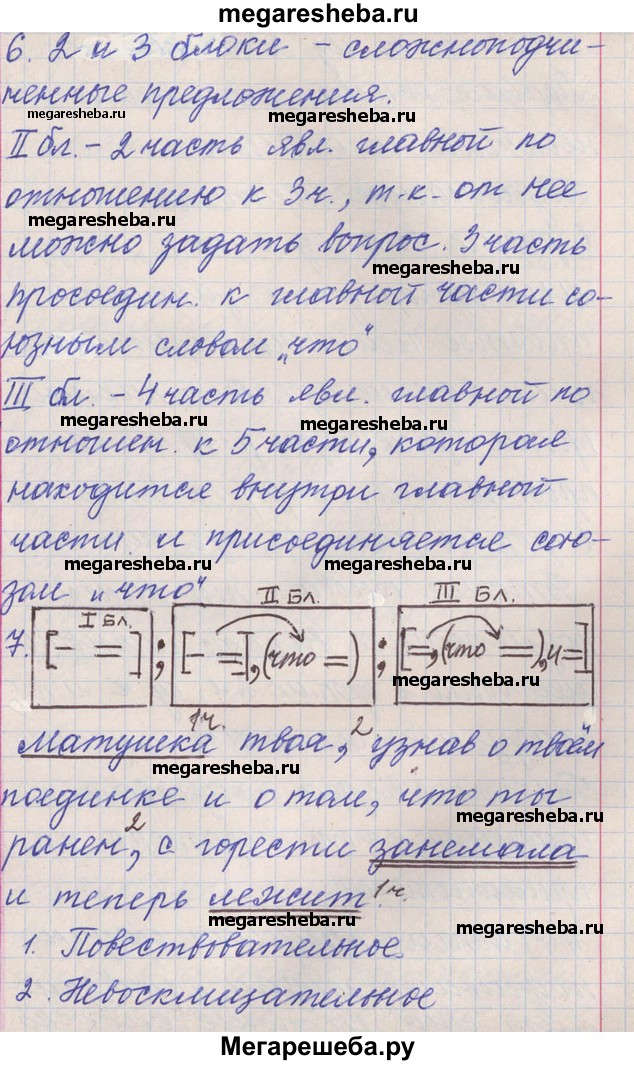 megaresheba.ru
6. 2 и 3 блоки – сложноподчи-
megaresheba.ru
ненные предложения.
megaresheba.ru megaresheba.ru
II бл. – 2 часть явл. главной по
отношению к 3 ч., т.к. от нее
megaresheba.ru
можно задать вопрос. 3 часть
megaresheba.ru
просоедин. к главной части со-
юзным словом „что"
III бл. – 4 часть явл. главной по
megaresheba.ru megaresheba.ru
отношен. к 5 части, которая
находится внутри главной
части и присоединяется сою-
megaresheba.ru megaresheba.ru
зом „что"
I Бл. II Бл. III Бл.
7. [– =]; [– =], (что =); [=, (что =), и =]
megaresheba.ru
1ч. 2
матушка твоя, узнав о твоём
megaresheba.ru
поединке и о том, что ты
megaresheba.ru
2
ранен, с горести занемала
и теперь лежит. 1ч.
megaresheba.ru megaresheba.ru
1. Повествовательное
2. Невосклицательное
Мегарешеба.ру